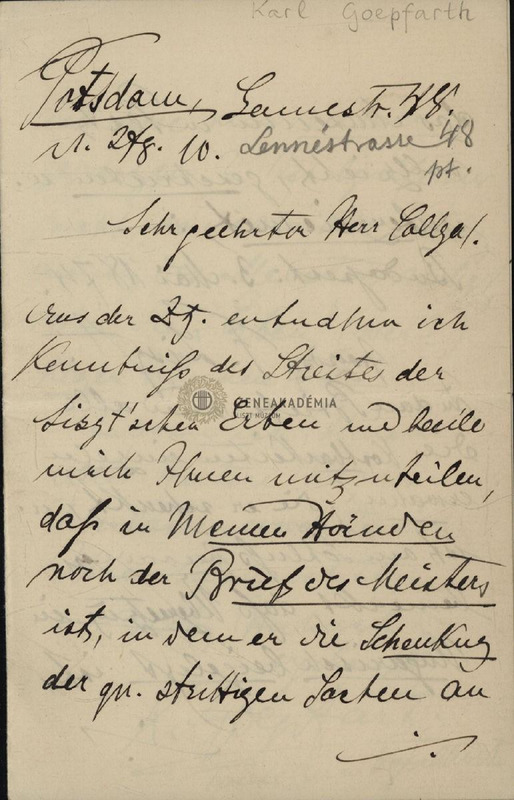 Karl Goepfarth
Potsdam, Lennéstr. 48.
d. 28. 10. Lennéstrasse 48
pt.
Sehr geehrter Herr College/.
Aus der Ztg. entnehme ich
Kenntniß des Streites der
Liszt'schen Erben und beeile
mich Ihnen mitzuteilen,
daß in Meinen Händen
noch der Brief des Meisters
ist, in dem er die Schenkung
der qu. strittigen Sachen an
ZENEAKADÉMIA
LISZT MÚZEUM